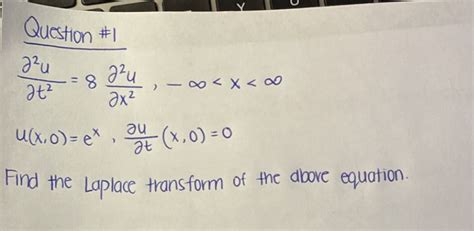 Question #1
∂²u/∂t² = 8 ∂²u/∂x² , -∞ < x < ∞
u(x,0) = eˣ , ∂u/∂t (x,0) = 0
Find the Laplace transform of the above equation.